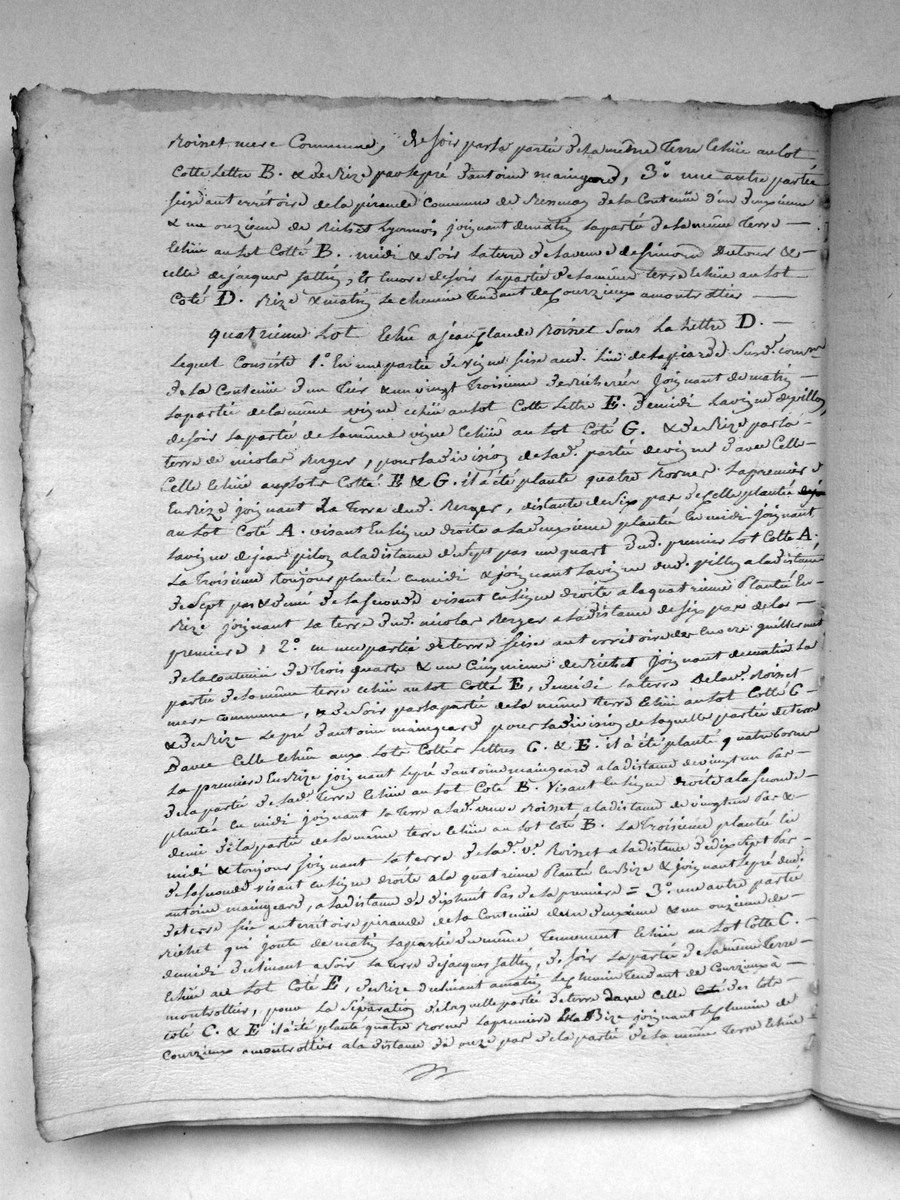 Roinet mere Commune, de soir par la partie de la même Terre Echüe au lot
Cotte Lettre B. & de Bize par le pré d'antoine maingeard, 3.° une autre partie
sise au territoire de la piraude Commune de de la Contenüe d'un deuxieme
& un onzieme de Bichet Lyonnois joignant de matin la partie de la même Terre
Echüe au lot Cotté B. midi & soir la terre de la veuve de Simond &
celle de jacques jallin, & Encore de soir la partie de la même terre Echüe au lot
Coté D. Bize & matin le chemin Tendant de Courzieux a montrottier
quatrieme Lot Echu a jean Claude Roinet sous La Lettre D.
Lequel Consiste 1.° En une partie de vigne sise aud. lieu de la piarde susd. comm.ne
de la Contenüe d'un Tier & un vingt Troisieme de Bicherée joignant de matin
la partie de la même vigne echüe au lot Cotte Lettre E. de midi la vigne de pillon,
de soir la partie de la même vigne Echüe au lot Coté G. & de Bize par la
terre de nicolas Berger, pour la division de lad. partie de vigne d'avec Celle
Celle Echüe aux lots Cotté E & G. il a été planté quatre Bornes La premiere
En Bize joignant La Terre dud. Berger, distante de six pas de Celle plantée
au lot Coté A. visant En ligne droite a la deuxieme plantée En midi joignant
la vigne de jean pilon a la distance de sept pas un quart dud. premier lot Cotté A.
La Troisieme toujours plantée en midi & joignant la vigne dud. pillon a la distance
de sept pas & demi de la seconde visant en ligne droite a la quatrieme Plantée En
Bize joignant la terre dud. nicolas Berger a la distance de six pas de la
premiere, 2.° en une partie de terre sise au territoire de guillermet
de la contenüe de trois quarts & un Cinquieme de Bichet joignant de matin la
partie de la même terre echüe au lot Cotté E, de midi la terre de la ve. Roinet
mere commune, & de soir par la partie de la même terre Echüe au lot Cotté C
& de Bize le pré d'antoine maingeard pour la division de laquelle partie de terre
d'avec Celle Echüe aux lots Cottés Lettres C. & E. il a été planté quatre bornes
La premiere En Bize joignant le pré d'antoine maingeard a la distance de vingt un pas
de la partie de lad. Terre Echüe au lot Coté B. visant En ligne droite a la seconde
plantée En midi joignant la terre a lad. veuve Roinet a la distance de vingt un pas &
demi de la partie de la même terre Echüe au lot coté B. La Troisieme plantée En
midi & toujours joignant la terre de lad. v.e Roinet a la distance de dix sept pas
de la seconde visant en ligne droite a la quatrieme Plantée En Bize & joignant le pré dud.
antoine maingeard, a la distance de dix huit Pas de la premiere = 3.° une autre partie
de terre sise au territoire piraude de la Contenüe d'un deuxieme & un onzieme de
Bichet qui joint de matin la partie du même Tennement Echüe au lot Cotté C.
de midi declinant a soir la terre de jacques jallin, de soir la partie de la même Terre
Echüe au lot Coté E, de Bize declinant a matin le chemin Tendant de Courzieux à
montrottier, pour la séparation de laquelle partie de terre d'avec celle des lots
coté C. & E il a été planté quatre Bornes la premiere En Bize joignant le Chemin de
Courzieux a montrottier a la distance de onze pas de la partie de la même Terre Echüe